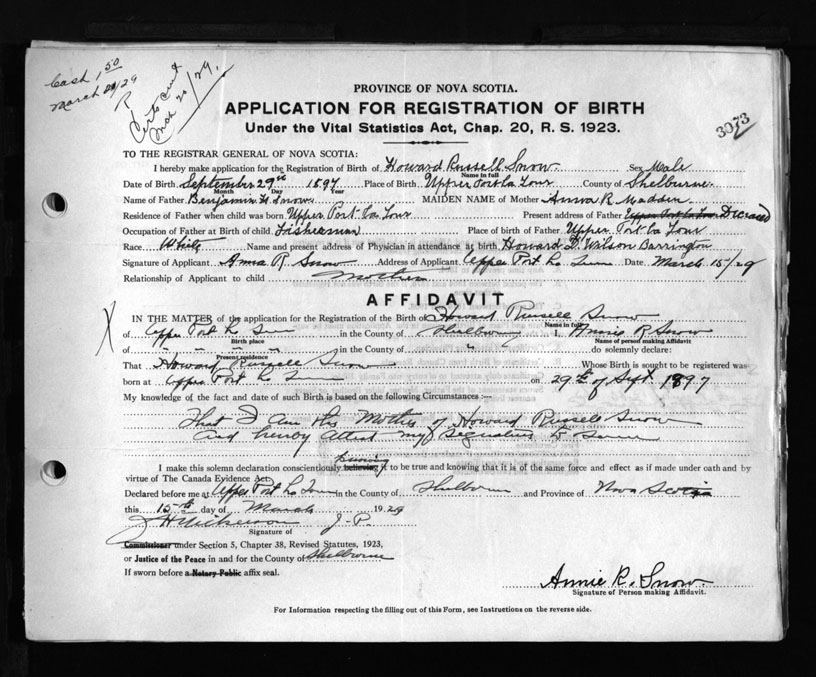 Cash 1 50
March 20/29
R
Cert sent
Mch 20/29.
PROVINCE OF NOVA SCOTIA.
APPLICATION FOR REGISTRATION OF BIRTH
Under the Vital Statistics Act, Chap. 20, R. S. 1923.
3073
TO THE REGISTRAR GENERAL OF NOVA SCOTIA:
I hereby make application for the Registration of Birth of Howard Russell Snow. Sex Male
Name in full
Date of Birth September 29th 1897 Place of Birth Upper Port La Tour County of Shelburne.
Month Day Year
Name of Father Benjamin H. Snow MAIDEN NAME of Mother Anna R Madden
Residence of Father when child was born Upper Port La Tour Present address of Father Upper Port La Tour Deceased
Occupation of Father at Birth of child. Fisherman Place of birth of Father Upper Port La Tour
Race White Name and present address of Physician in attendance at birth Howard D. Wilson Barrington
Signature of Applicant Anna R Snow Address of Applicant Upper Port La Tour Date March 15/29
Relationship of Applicant to child Mother
AFFIDAVIT
IN THE MATTER of the application for the Registration of the Birth of Howard Russell Snow
Name in full
of Upper Port La Tour in the County of Shelburne I, Annie R Snow
Birth place Name of person making Affidavit
of " " " in the County of " do solemnly declare:
Present residence
That Howard Russell Snow Whose Birth is sought to be registered was
born at Upper Port La Tour on 29th of Sept 1897
My knowledge of the fact and date of such Birth is based on the following Circumstances :—
That I am the Mother of Howard Russell Snow
and hereby attest my signature to same
knowing
I make this solemn declaration conscientiously believing it to be true and knowing that it is of the same force and effect as if made under oath and by
virtue of The Canada Evidence Act.
Declared before me at Upper Port La Tour in the County of Shelburne and Province of Nova Scotia
this 15th day of March 1929
J H Nickerson J. P.
Signature of
Commissioner under Section 5, Chapter 38, Revised Statutes, 1923,
or Justice of the Peace in and for the County of Shelburne
If sworn before a Notary Public affix seal.
Annie R. Snow.
Signature of Person making Affidavit.
For Information respecting the filling out of this Form, see Instructions on the reverse side.